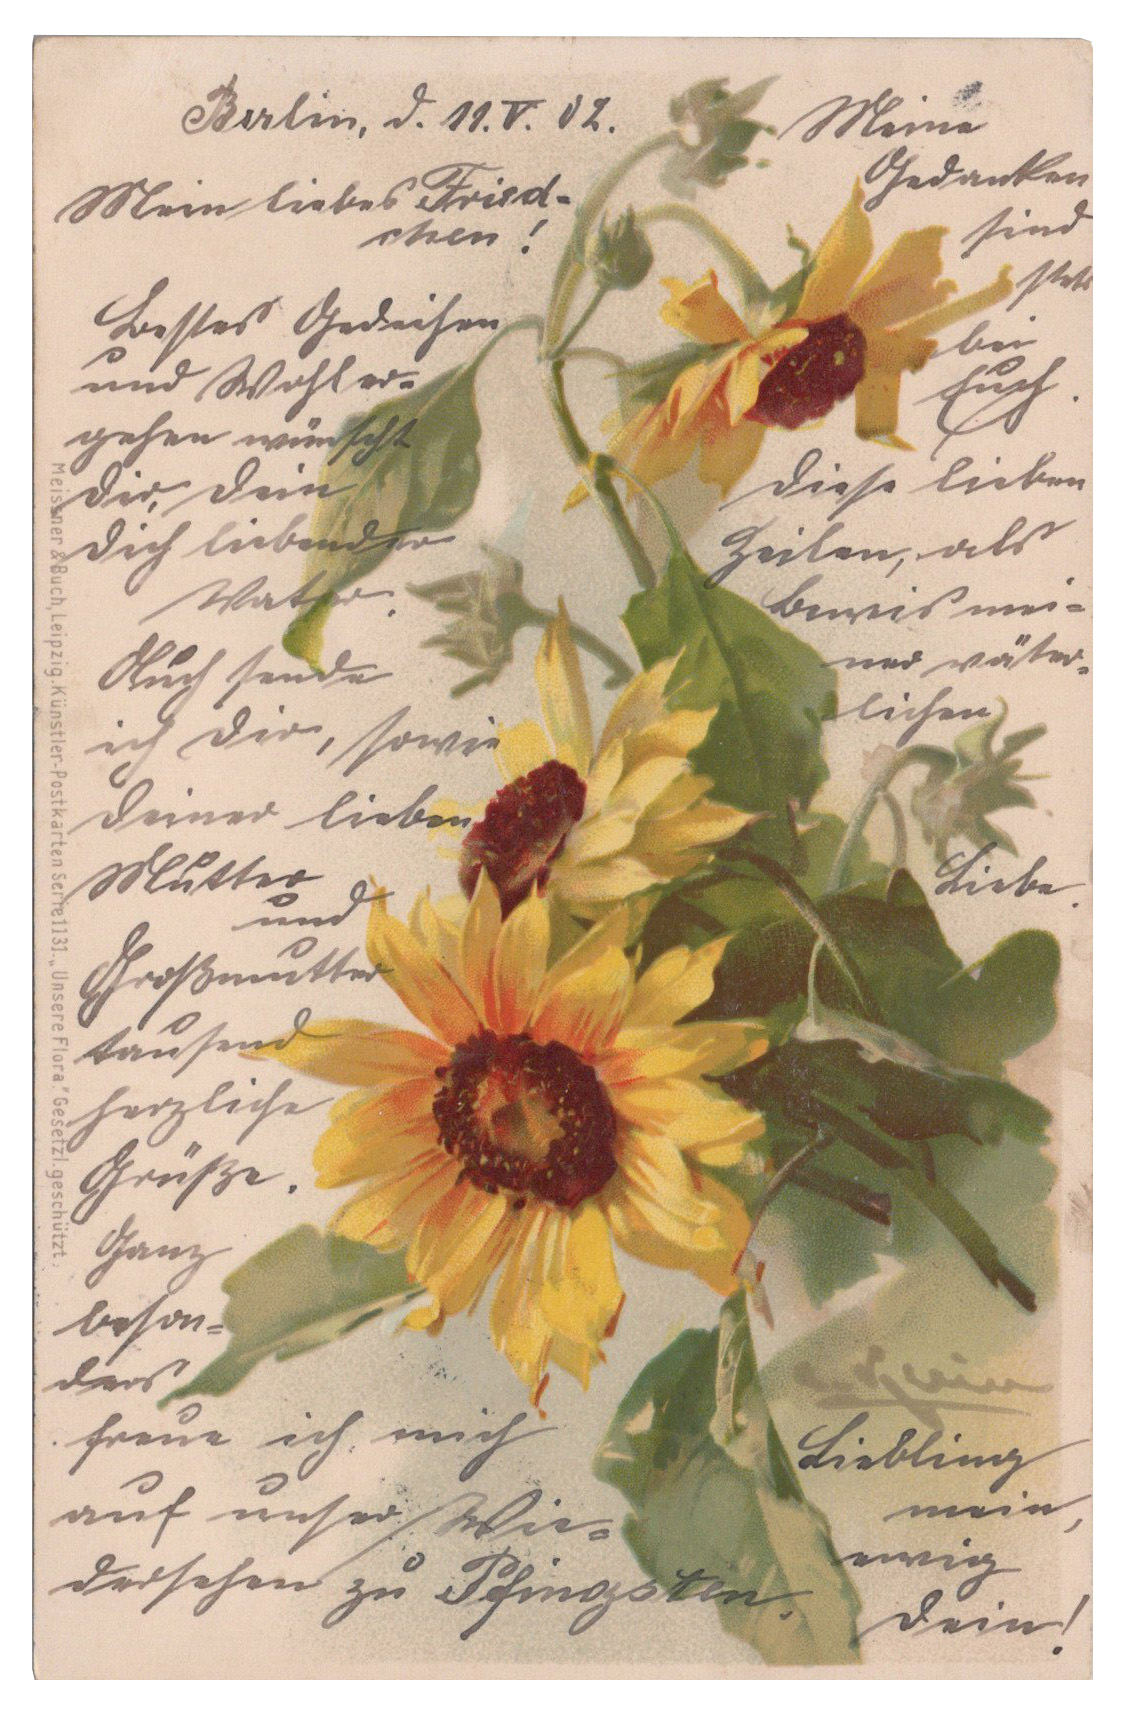 Berlin, d. 11. V. 02.
Mein liebes Fried-
chen!
Bestes Gedeihen
und Wohler=
gehen wünscht
Dir, Dein
Dich liebender
Vater.
Auch sende
ich Dir, sowie
Deiner lieben
Mutter
und
Großmutter
tausend
herzliche
Grüße.
Ganz
beson=
ders
freue ich mich
auf unser Wie=
dersehen zu Pfingsten.
Meine
Gedanken
sind
stets
bei
Euch.
Diese lieben
Zeilen, als
Beweis mei=
ner väter=
lichen
Liebe.
Liebling
mein,
ewig
Dein!
C. Klein
Meissner & Buch, Leipzig. Künstler-Postkarten Serie 1131. „Unsere Flora." Gesetzl. geschützt.